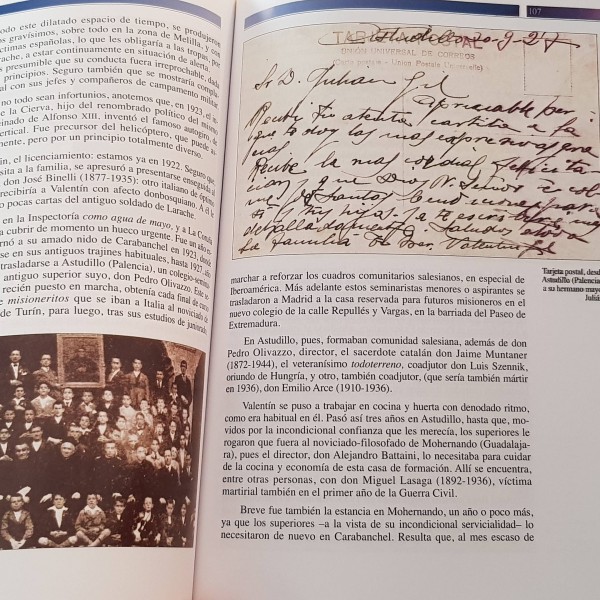 odo este dilatado espacio de tiempo, se produjeron
os gravísimos, sobre todo en la zona de Melilla, y con
ctimas españolas, lo que les obligaría a las tropas, por
rache, a estar continuamente en situación de alarma.
s presumible que su conducta fuera irreprochable, dados
principios. Seguro también que se mostraría
al con sus jefes y compañeros de campamento militar.
no todo sean infortunios, anotemos que, en 1923, el
la Cierva, hijo del renombrado político del mismo
einado de Alfonso XIII, inventó el famoso autogiro de
ertical. Fue precursor del helicóptero, que puede
mente, pero por un principio totalmente diverso.
in, el licenciamiento: estamos ya en 1922. Seguro que,
sita a la familia, se apresuró a presentarse enseguida
don José Binelli (1877-1935): otro italiano de
recibiría a Valentín con afecto donbosquiano. A él le
pocas cartas del antiguo soldado de Larache.
en la Inspectoría como agua de mayo, y La
a cubrir de momento un hueco urgente. Fue un año
nó a su amado nido de Carabanchel en 1923, donde
se en sus antiguos trajines habituales, hasta 1927, año
trasladarse a Astudillo (Palencia), un colegio,
antiguo superior suyo, don Pedro Olivazzo. Este
recién puesto en marcha, obtenía cada final de curso
e misioneritos que se iban a Italia al noviciado de
de Turín, para luego, tras sus estudios de
107
TARJETA POSTAL
UNIÓN UNIVERSAL DE CORREOS
(Carte postale - Union Postale Universelle)
Astudillo 20-9-27
Sr D. Julian Gil
Apreciable
Recibí tu atenta cartita a la
que te doy las mas expresivas gra
cias.
Recibe la mas cordial felicita
cion y que Dios N. Señor te col
me de Santos
y tus hijos. Ya te escribiré mas
detalladamente. Saludos a
La familia
Valentin Gil
Tarjeta postal, desde
Astudillo (Palencia)
a su hermano mayor
Julián
marchar a reforzar los cuadros comunitarios salesianos, en especial de
Iberoamérica. Más adelante estos seminaristas menores o aspirantes se
trasladaron a Madrid a la casa reservada para futuros misioneros en el
nuevo colegio de la calle Repullés y Vargas, en la barriada del Paseo de
Extremadura.
En Astudillo, pues, formaban comunidad salesiana, además de don
Pedro Olivazzo, director, el sacerdote catalán don Jaime Muntaner
(1872-1944), el veteranísimo todoterreno, coadjutor don Luis Szennik,
oriundo de Hungría, y otro, también coadjutor, (que sería también mártir
en 1936), don Emilio Arce (1910-1936).
Valentín se puso a trabajar en cocina y huerta con denodado ritmo,
como era habitual en él. Pasó así tres años en Astudillo, hasta que, mo-
vidos por la incondicional confianza que les merecía, los superiores le
rogaron que fuera al noviciado-filosofado de Mohernando (Guadalaja-
ra), pues el director, don Alejandro Battaini, lo necesitaba para cuidar
de la cocina y economía de esta casa de formación. Allí se encuentra,
entre otras personas, con don Miguel Lasaga (1892-1936), víctima
martirial también en el primer año de la Guerra Civil.
Breve fue también la estancia en Mohernando, un año o poco más,
ya que los superiores –a la vista de su incondicional servicialidad– lo
necesitaron de nuevo en Carabanchel. Resulta que, al mes escaso de